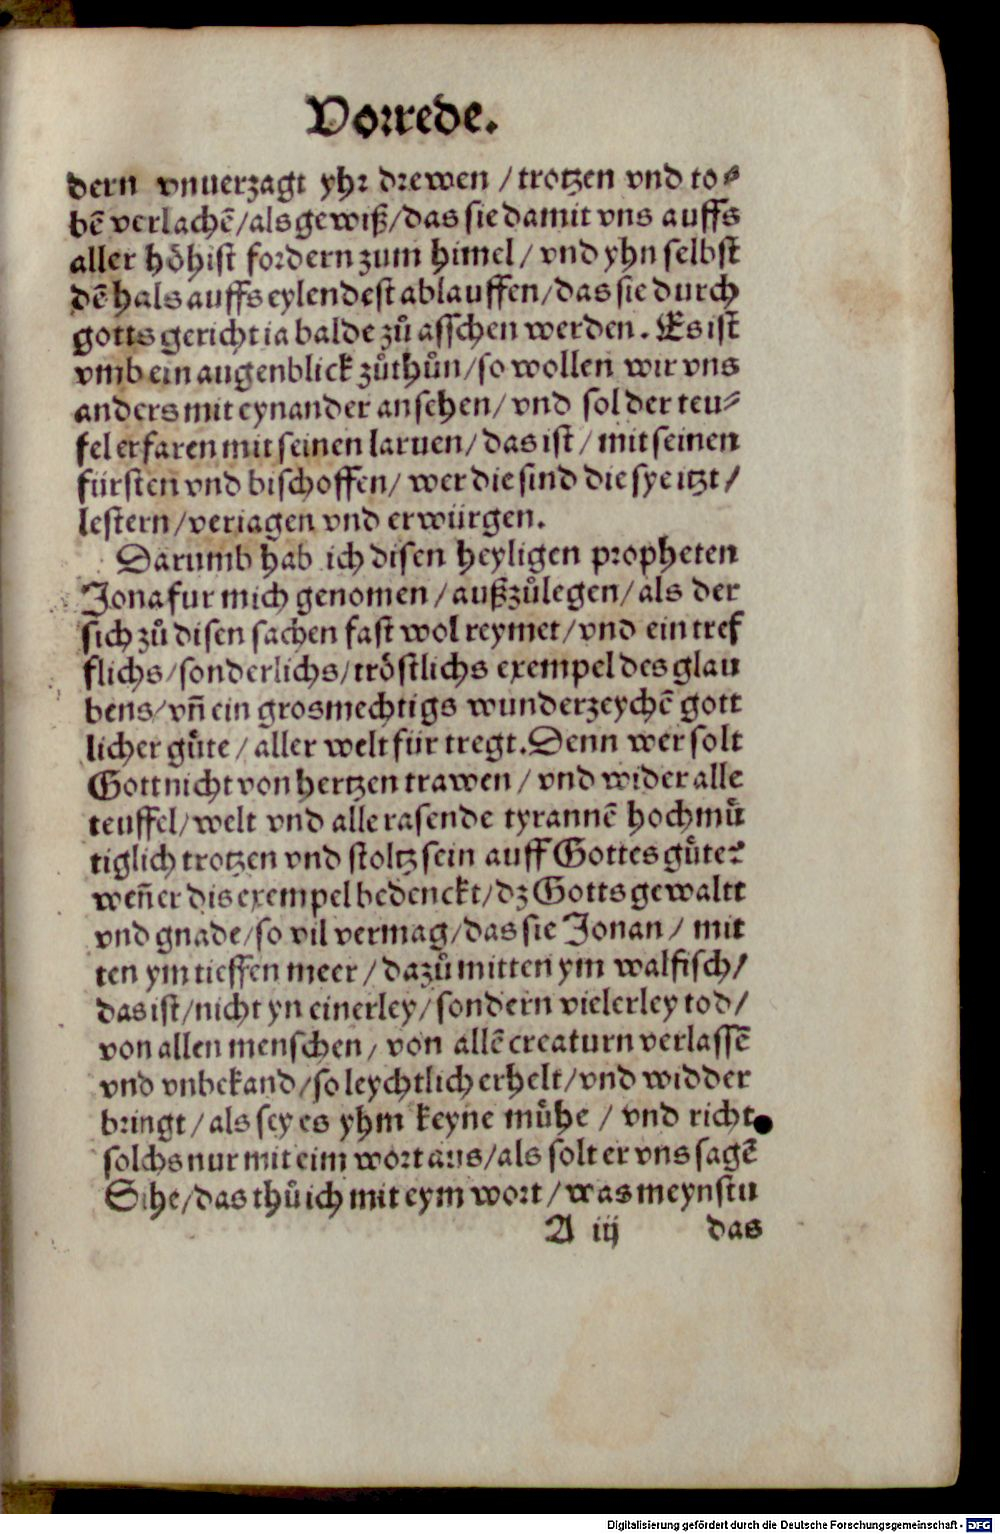 Vorrede.
dern vnuerzagt yhr drewen / trotzen vnd to⸗
bẽ verlachẽ / als gewiß / das sie damit vns auffs
aller hoͤhist fordern zum himel / vnd yhn selbst
dẽ hals auffs eylendest ablauffen / das sie durch
gotts gericht ia balde zuͦ asschen werden. Es ist
vmb ein augenblick zuͦthuͦn / so wollen wir vns
anders mit eynander ansehen / vnd sol der teu⸗
fel erfaren mit seinen laruen / das ist / mit seinen
fürsten vnd bischoffen / wer die sind die sye itzt /
lestern / veriagen vnd erwürgen.
Darumb hab ich disen heyligen propheten
Jona fur mich genomen / außzuͦlegen / als der
sich zuͦ disen sachen fast wol reymet / vnd ein tref
flichs / sonderlichs / troͤstlichs exempel des glau
bens / vñ ein grosmechtigs wunderzeychẽ gott
licher guͤte / aller welt für tregt. Denn wer solt
Gott nicht von hertzen trawen / vnd wider alle
teuffel / welt vnd alle rasende tyrannẽ hochmuͤ
tiglich trotzen vnd stoltz sein auff Gottes guͤte?
weñ er dis exempel bedenckt / dz Gotts gewaltt
vnd gnade / so vil vermag / das sie Jonan / mit
ten ym tieffen meer / dazuͦ mitten ym walfisch /
das ist / nicht yn einerley / sondern vielerley tod /
von allen menschen / von allẽ creaturn verlassẽ
vnd vnbekand / so leychtlich erhelt / vnd widder
bringt / als sey es yhm keyne muͤhe / vnd richt
solchs nur mit eim wort aus / als solt er vns sagẽ
Sihe / das thuͦ ich mit eym wort / was meynstu
A iij das
Digitalisierung gefördert durch die Deutsche Forschungsgemeinschaft - DFG